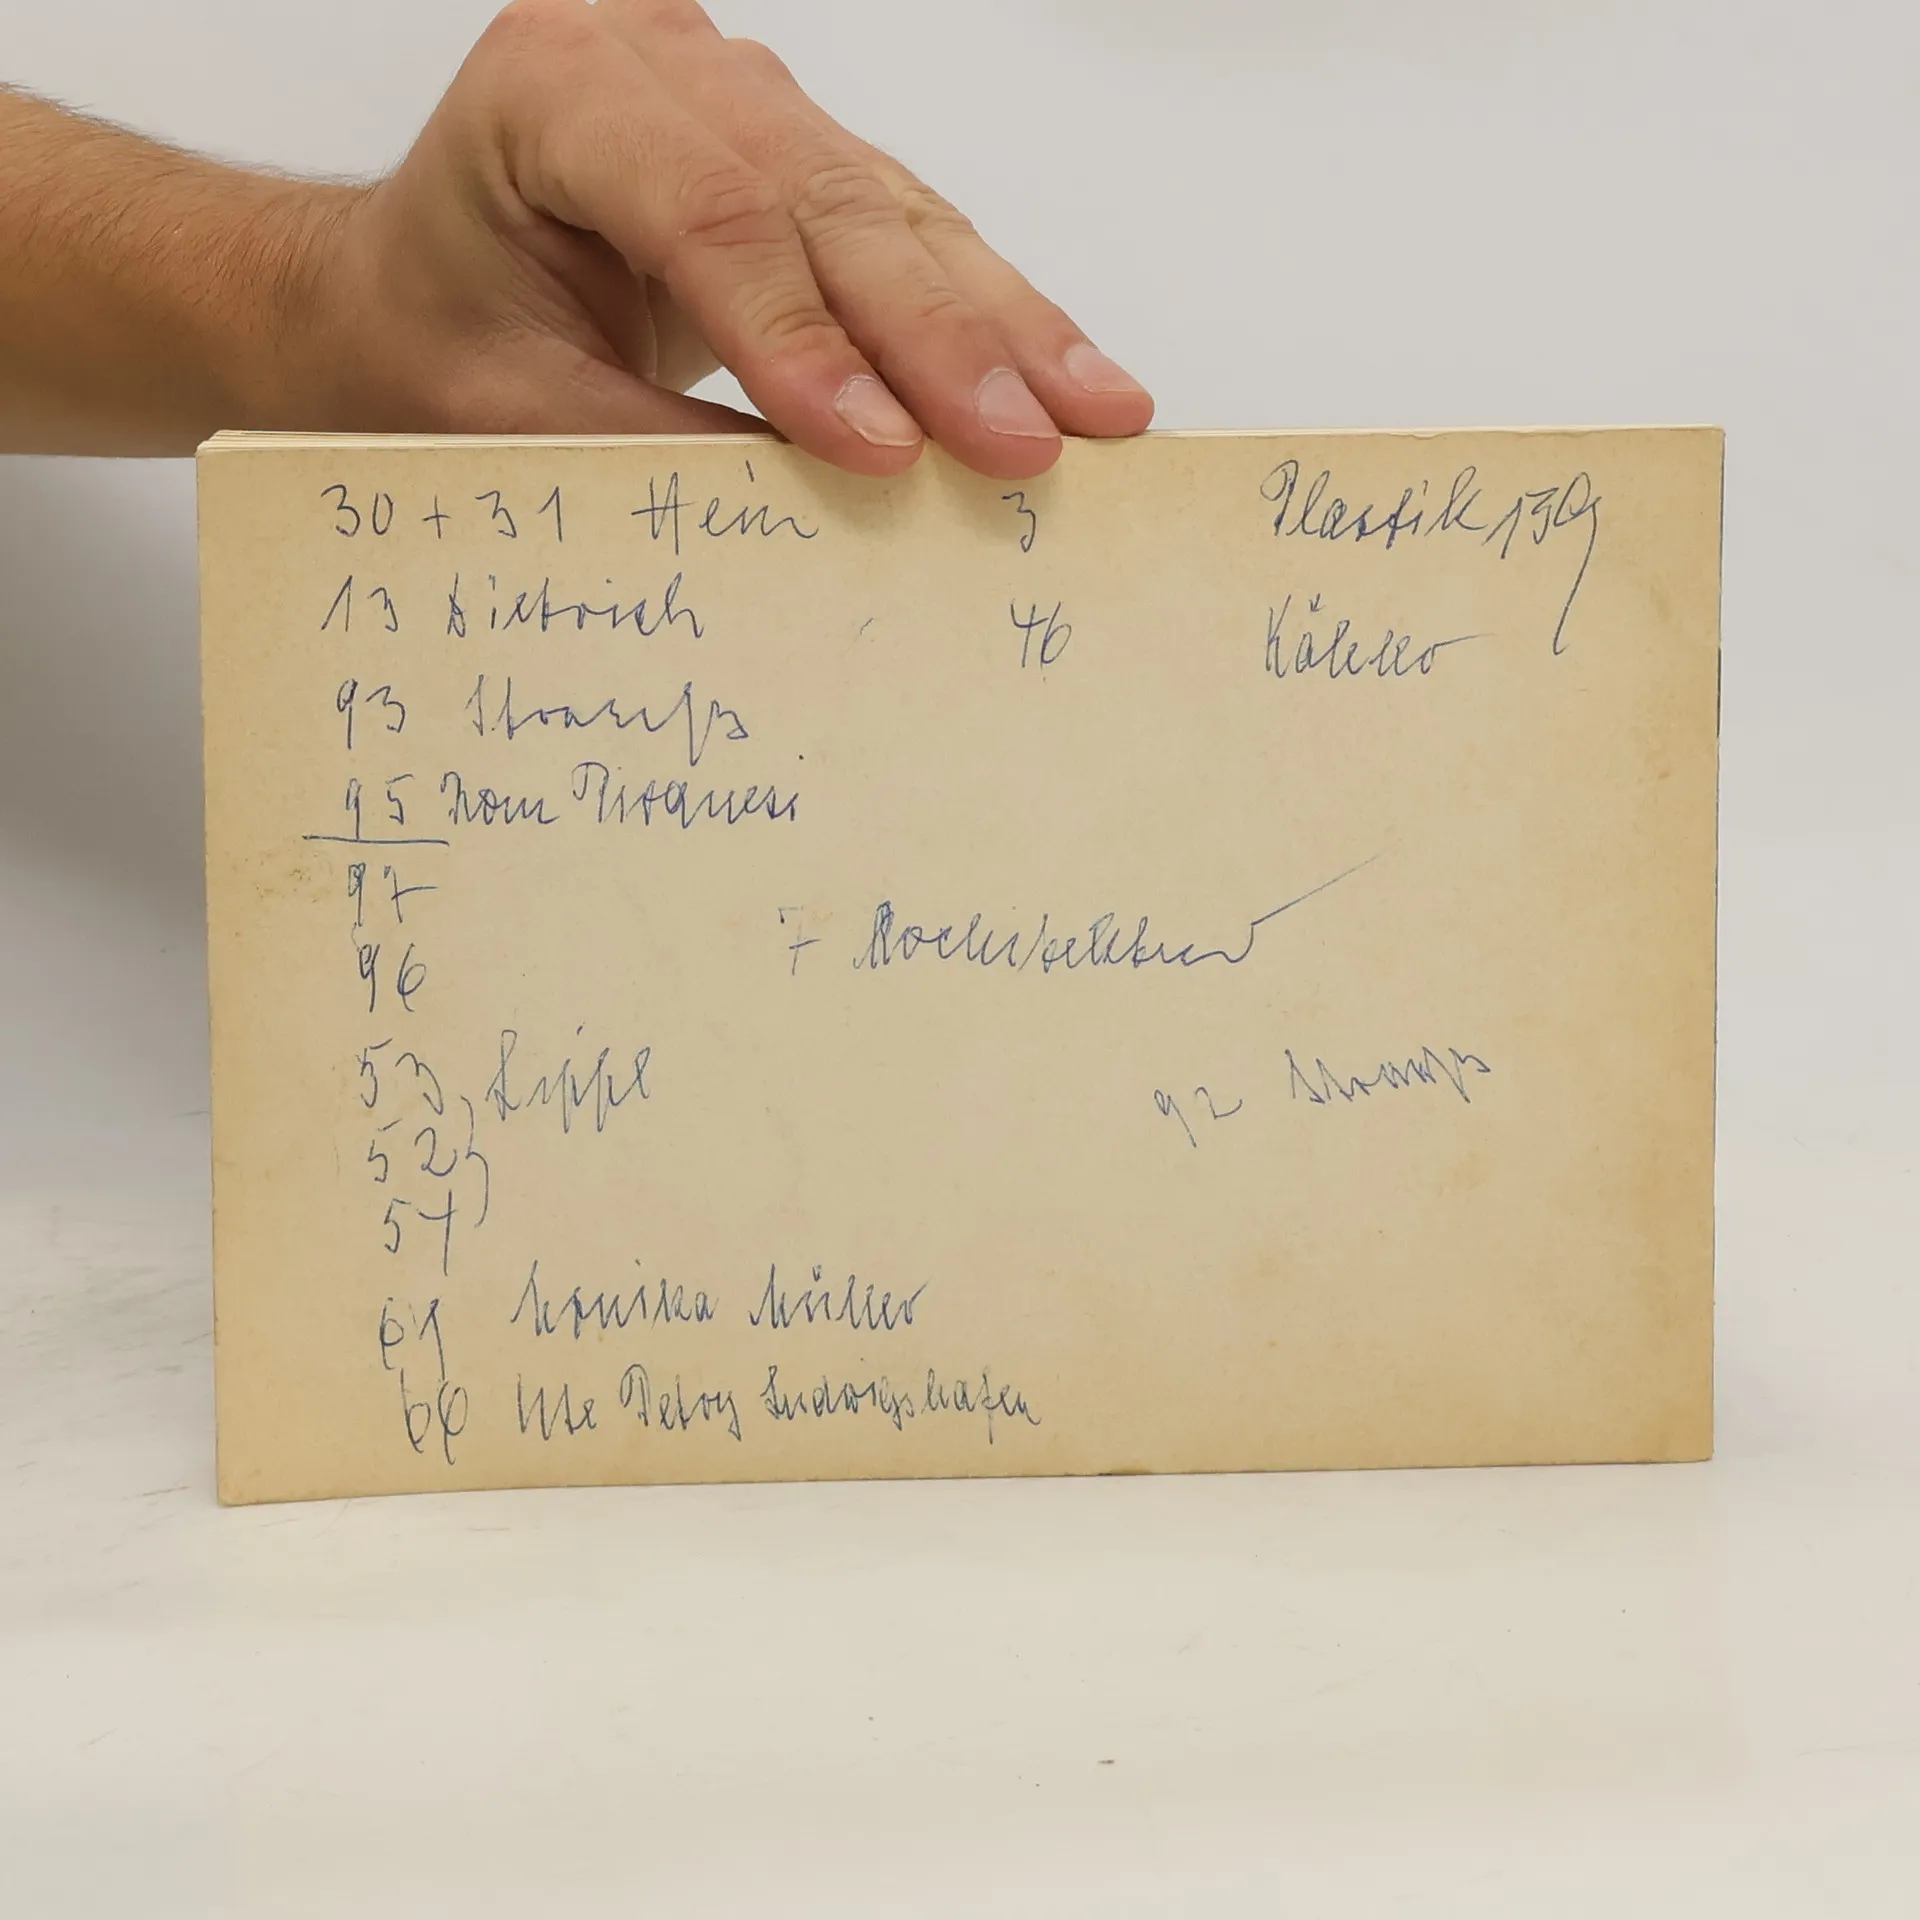 30 + 31 Hein 3 Plastik 139
13 Dietrich 46 Köhler
93 Strauß
95 Piranesi
97
96
7
53 Lippl
52
54
92 Strauß
61 Monika Müller
60 Ute Petry Ludwigshafen